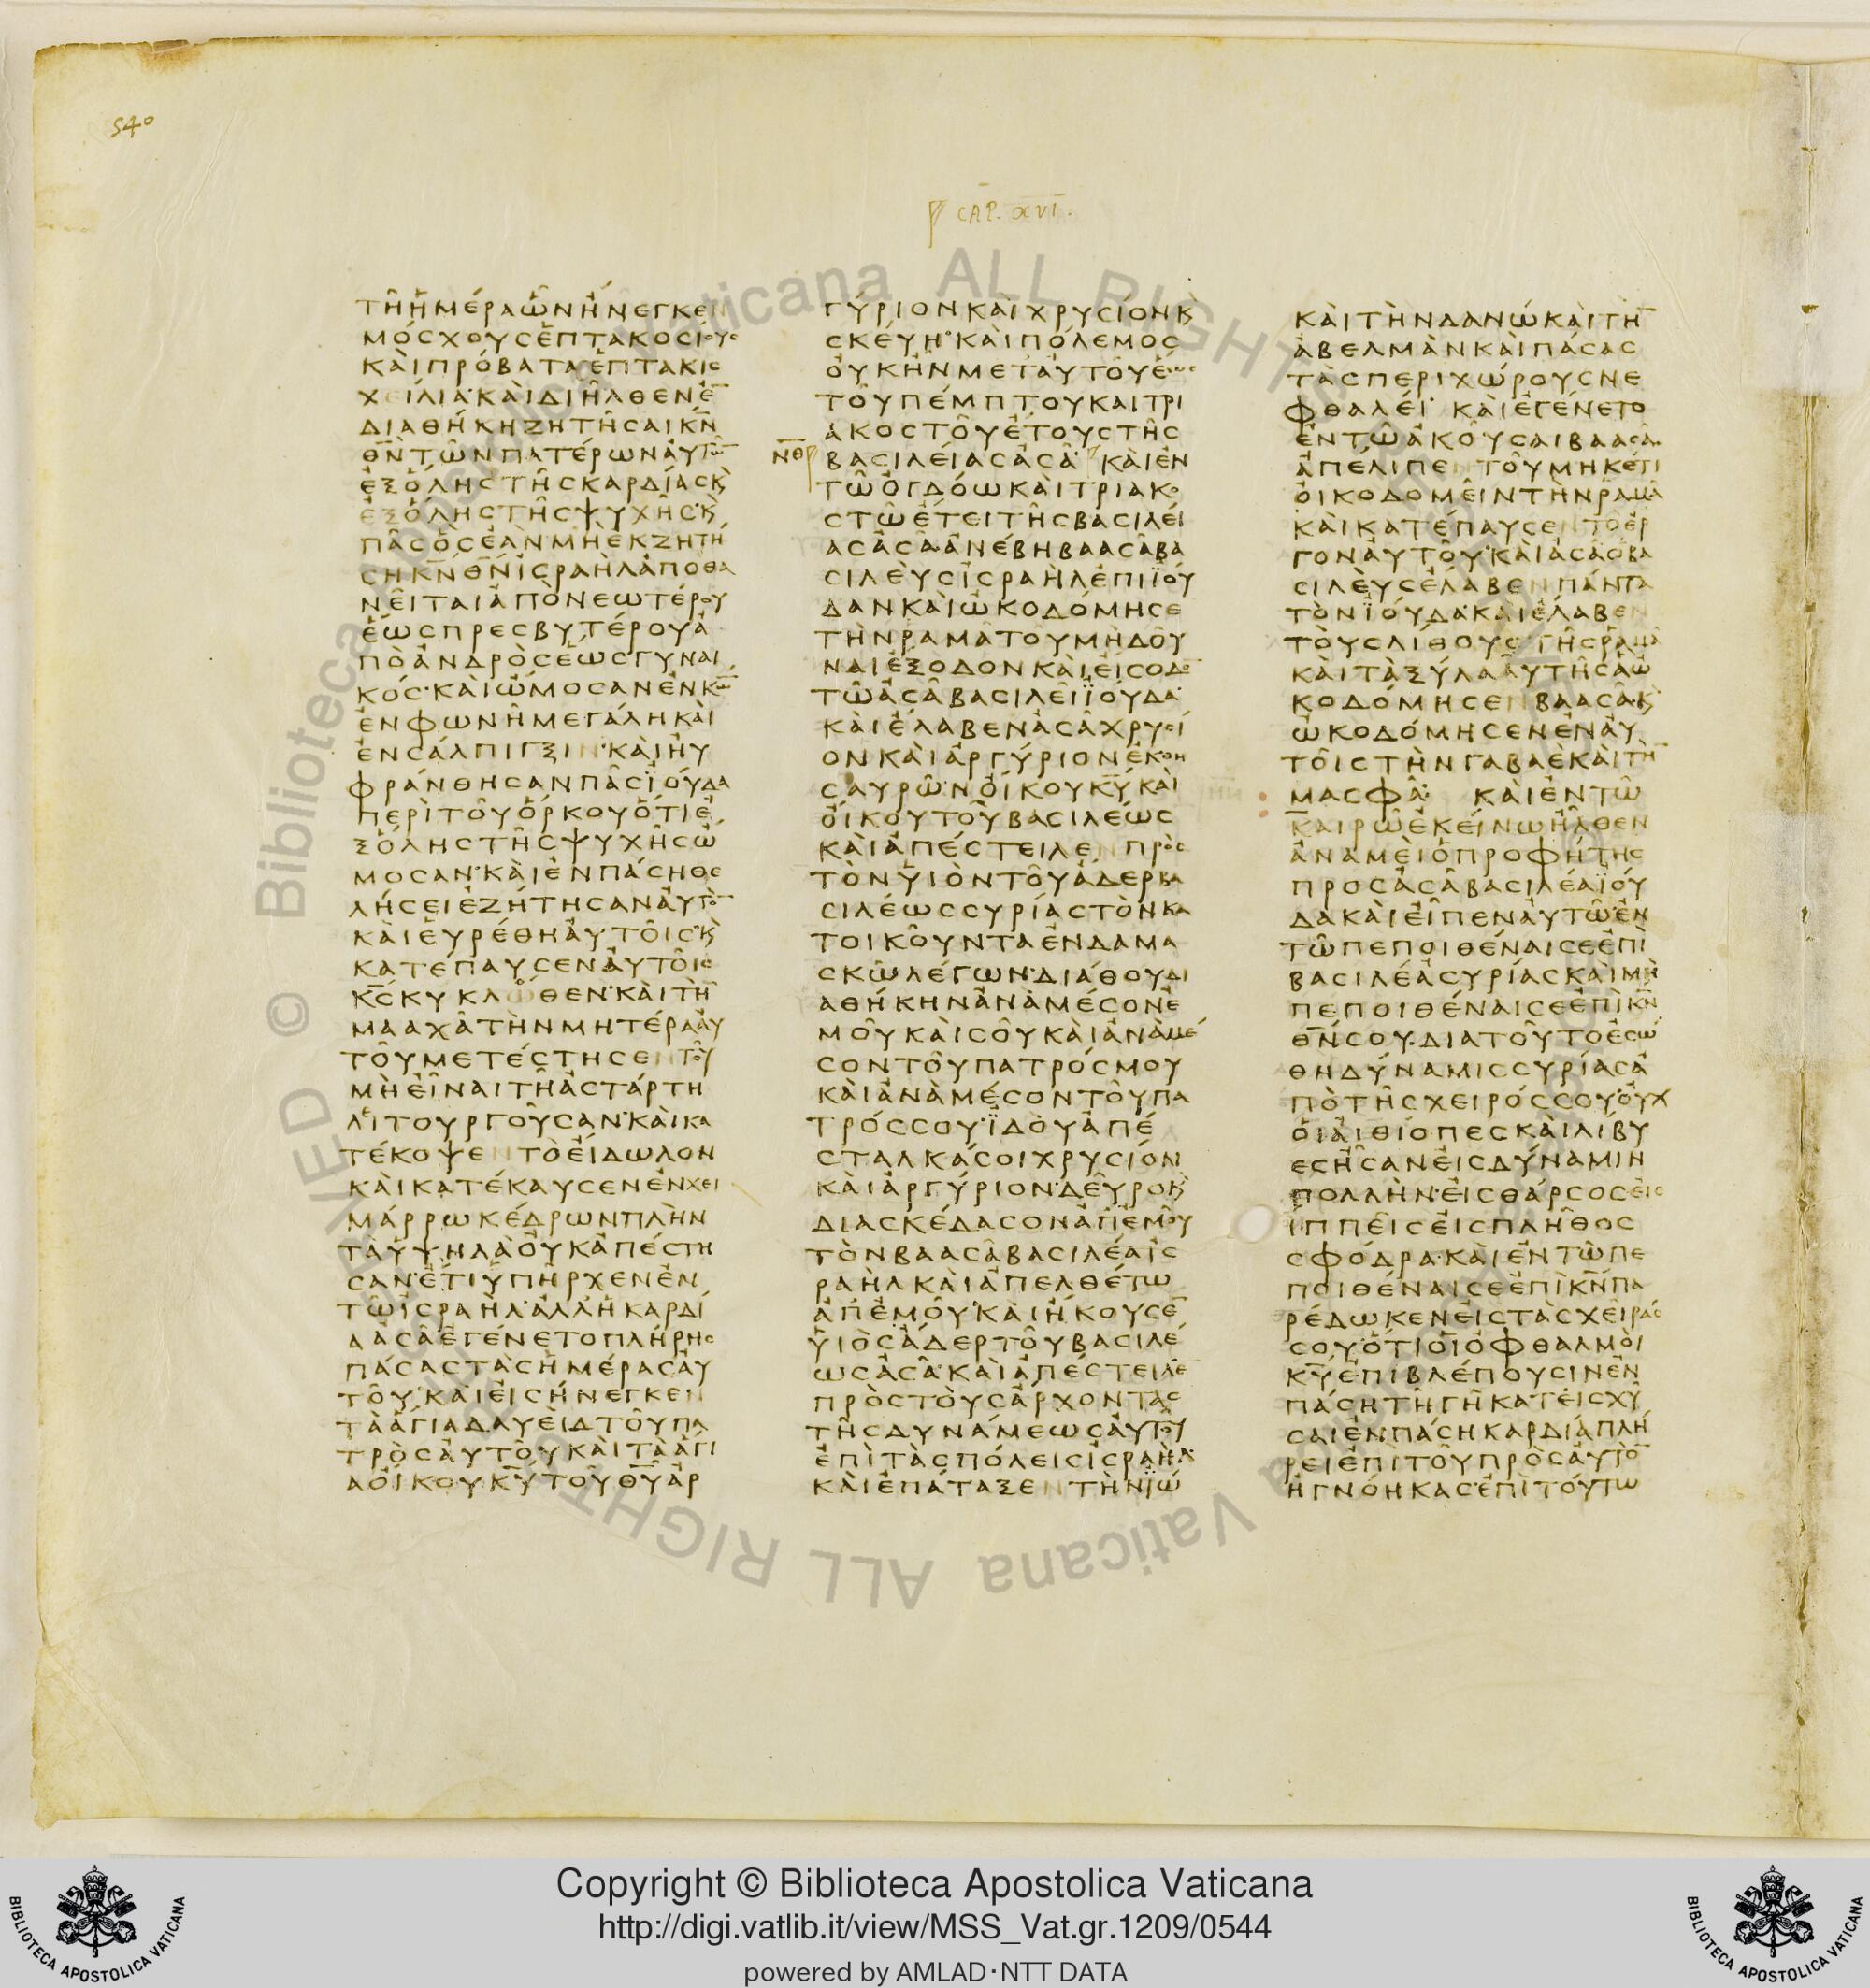 540
CAP. XVI.
ΤΗΗΜΕΡΑΩΝΗΝΕΓΚΕΝ
ΜΟСΧΟΥСΕΠΤΑΚΟСΙΟΥС
ΚΑΙΠΡΟΒΑΤΑΕΠΤΑΚΙС
ΧΕΙΛΙΑ·ΚΑΙΔΙΗΛΘΕΝΕ̅
ΔΙΑΘΗΚΗΖΗΤΗСΑΙΚ̅Ν̅
Θ̅Ν̅ΤΩΝΠΑΤΕΡΩΝΑΥΤΩ̅
ΕΞΟΛΗСΤΗСΚΑΡΔΙΑСΚ
ΕΞΟΛΗСΤΗСΨΥΧΗС·Κ
ΠΑСΟСΕΑΝΜΗΕΚΖΗΤΗ
СΗΚ̅Ν̅Θ̅Ν̅ΙСΡΑΗΛΑΠΟΘΑ
ΝΕΙΤΑΙΑΠΟΝΕΩΤΕΡΟΥ
ΕΩСΠΡΕСΒΥΤΕΡΟΥΑ
ΠΟΑΝΔΡΟСΕΩСΓΥΝΑΙ
ΚΟС·ΚΑΙΩΜΟСΑΝΕΝΚΩ̅
ΕΝΦΩΝΗΜΕΓΑΛΗΚΑΙ
ΕΝСΑΛΠΙΓΞΙΝ·ΚΑΙΗΥ
ΦΡΑΝΘΗСΑΝΠΑСΪΟΥΔΑ
ΠΕΡΙΤΟΥΟΡΚΟΥΟΤΙΕ
ΞΟΛΗСΤΗСΨΥΧΗСΩ
ΜΟСΑΝ·ΚΑΙΕΝΠΑСΗΘΕ
ΛΗСΕΙΕΖΗΤΗСΑΝΑΥΤΟ̅
ΚΑΙΕΥΡΕΘΗΑΥΤΟΙС·Κ
ΚΑΤΕΠΑΥСΕΝΑΥΤΟΙС
Κ̅С̅ΚΥΚΛΟΘΕΝ·ΚΑΙΤΗ̅
ΜΑΑΧΑΤΗΝΜΗΤΕΡΑΑΥ
ΤΟΥΜΕΤΕСΤΗСΕΝΤΟΥ
ΜΗΕΙΝΑΙΤΗΑСΤΑΡΤΗ
ΛΕΙΤΟΥΡΓΟΥСΑΝ·ΚΑΙΚΑ
ΤΕΚΟΨΕΝΤΟΕΙΔΩΛΟΝ
ΚΑΙΚΑΤΕΚΑΥСΕΝΕΝΧΕΙ
ΜΑΡΡΩΚΕΔΡΩΝΠΛΗΝ
ΤΑΥΨΗΛΑΟΥΚΑΠΕСΤΗ
СΑΝ·ΕΤΙΥΠΗΡΧΕΝΕΝ
ΤΩΙСΡΑΗΛ·ΑΛΛΗΚΑΡΔΙ
ΑΑСΑΕΓΕΝΕΤΟΠΛΗΡΗС
ΠΑСΑСΤΑСΗΜΕΡΑСΑΥ
ΤΟΥ·ΚΑΙΕΙСΗΝΕΓΚΕΝ
ΤΑΑΓΙΑΔΑΥΕΙΔΤΟΥΠΑ
ΤΡΟСΑΥΤΟΥΚΑΙΤΑΑΓΙ
ΑΟΙΚΟΥΚ̅Υ̅ΤΟΥΘ̅Υ̅ΑΡ
ΓΥΡΙΟΝΚΑΙΧΡΥСΙΟΝΚ
СΚΕΥΗ·ΚΑΙΠΟΛΕΜΟС
ΟΥΚΗΝΜΕΤΑΥΤΟΥΕΩС
ΤΟΥΠΕΜΠΤΟΥΚΑΙΤΡΙ
ΑΚΟСΤΟΥΕΤΟΥСΤΗС
Ν̅Θ̅ ΒΑСΙΛΕΙΑСΑСΑ· ΚΑΙΕΝ
ΤΩΟΓΔΟΩΚΑΙΤΡΙΑΚΟ
СΤΩΕΤΕΙΤΗСΒΑСΙΛΕΙ
ΑСΑСΑ·ΑΝΕΒΗΒΑΑСΑΒΑ
СΙΛΕΥСΙСΡΑΗΛΕΠΙΪΟΥ
ΔΑΝΚΑΙΩΚΟΔΟΜΗСΕ
ΤΗΝΡΑΜΑΤΟΥΜΗΔΟΥ
ΝΑΙΕΞΟΔΟΝΚΑΙΕΙСΟΔΟ̅
ΤΩΑСΑΒΑСΙΛΕΙΪΟΥΔΑ·
ΚΑΙΕΛΑΒΕΝΑСΑΧΡΥСΙ
ΟΝΚΑΙΑΡΓΥΡΙΟΝΕΚΘΗ
СΑΥΡΩΝΟΙΚΟΥΚ̅Υ̅ΚΑΙ
ΟΙΚΟΥΤΟΥΒΑСΙΛΕΩС
ΚΑΙΑΠΕСΤΕΙΛΕΝΠΡΟС
ΤΟΝΥΙΟΝΤΟΥΑΔΕΡΒΑ
СΙΛΕΩССΥΡΙΑСΤΟΝΚΑ
ΤΟΙΚΟΥΝΤΑΕΝΔΑΜΑ
СΚΩΛΕΓΩΝ·ΔΙΑΘΟΥΔΙ
ΑΘΗΚΗΝΑΝΑΜΕСΟΝΕ
ΜΟΥΚΑΙСΟΥΚΑΙΑΝΑΜΕ
СΟΝΤΟΥΠΑΤΡΟСΜΟΥ
ΚΑΙΑΝΑΜΕСΟΝΤΟΥΠΑ
ΤΡΟССΟΥ·ΪΔΟΥΑΠΕ
СΤΑΛΚΑСΟΙΧΡΥСΙΟΝ
ΚΑΙΑΡΓΥΡΙΟΝ·ΔΕΥΡΟΚ
ΔΙΑСΚΕΔΑСΟΝΑΠΕΜΟΥ
ΤΟΝΒΑΑСΑΒΑСΙΛΕΑΙС
ΡΑΗΛΚΑΙΑΠΕΛΘΕΤΩ
ΑΠΕΜΟΥ·ΚΑΙΗΚΟΥСΕ̅
ΥΙΟСΑΔΕΡΤΟΥΒΑСΙΛΕ
ΩСΑСΑ·ΚΑΙΑΠΕСΤΕΙΛΕ
ΠΡΟСΤΟΥСΑΡΧΟΝΤΑС
ΤΗСΔΥΝΑΜΕΩСΑΥΤΟΥ
ΕΠΙΤΑСΠΟΛΕΙСΙСΡΑΗΛ·
ΚΑΙΕΠΑΤΑΞΕΝΤΗΝΪΩ
ΚΑΙΤΗΝΔΑΝΩΚΑΙΤΗ̅
ΑΒΕΛΜΑΝΚΑΙΠΑСΑС
ΤΑСΠΕΡΙΧΩΡΟΥСΝΕ
ΦΘΑΛΕΙ· ΚΑΙΕΓΕΝΕΤΟ
ΕΝΤΩΑΚΟΥСΑΙΒΑΑСΑ
ΑΠΕΛΙΠΕΝΤΟΥΜΗΚΕΤΙ
ΟΙΚΟΔΟΜΕΙΝΤΗΝΡΑΜΑ
ΚΑΙΚΑΤΕΠΑΥСΕΝΤΟΕΡ
ΓΟΝΑΥΤΟΥ·ΚΑΙΑСΑΟΒΑ
СΙΛΕΥСΕΛΑΒΕΝΠΑΝΤΑ
ΤΟΝΪΟΥΔΑ·ΚΑΙΕΛΑΒΕΝ
ΤΟΥСΛΙΘΟΥСΤΗСΡΑΜΑ
ΚΑΙΤΑΞΥΛΑΑΥΤΗСΑΩ
ΚΟΔΟΜΗСΕΝΒΑΑСΑ·Κ
ΩΚΟΔΟΜΗСΕΝΕΝΑΥ
ΤΟΙСΤΗΝΓΑΒΑΕΚΑΙΤΗ̅
ΜΑСΦΑ· ΚΑΙΕΝΤΩ
ΚΑΙΡΩΕΚΕΙΝΩΗΛΘΕΝ
ΑΝΑΜΕΙΟΠΡΟΦΗΤΗС
ΠΡΟСΑСΑΒΑСΙΛΕΑΪΟΥ
ΔΑΚΑΙΕΙΠΕΝΑΥΤΩ·ΕΝ
ΤΩΠΕΠΟΙΘΕΝΑΙСΕΕΠΙ
ΒΑСΙΛΕΑСΥΡΙΑСΚΑΙΜΗ
ΠΕΠΟΙΘΕΝΑΙСΕΕΠΙΚ̅Ν̅
Θ̅Ν̅СΟΥ·ΔΙΑΤΟΥΤΟΕСΩ
ΘΗΔΥΝΑΜΙССΥΡΙΑСΑ
ΠΟΤΗСΧΕΙΡΟССΟΥ·ΟΥΧ
ΟΙΑΙΘΙΟΠΕСΚΑΙΛΙΒΥ
ΕСΗСΑΝΕΙСΔΥΝΑΜΙΝ
ΠΟΛΛΗΝ·ΕΙСΘΑΡСΟСΕΙС
ΙΠΠΕΙСΕΙСΠΛΗΘΟС
СΦΟΔΡΑ·ΚΑΙΕΝΤΩΠΕ
ΠΟΙΘΕΝΑΙСΕΕΠΙΚ̅Ν̅ΠΑ
ΡΕΔΩΚΕΝΕΙСΤΑСΧΕΙΡΑС
СΟΥ·ΟΤΙΟΙΟΦΘΑΛΜΟΙ
Κ̅Υ̅ΕΠΙΒΛΕΠΟΥСΙΝΕΝ
ΠΑСΗΤΗΓΗΚΑΤΕΙСΧΥ
СΑΙΕΝΠΑСΗΚΑΡΔΙΑΠΛΗ
ΡΕΙΕΠΙΤΟΥΠΡΟСΑΥΤΟ̅
ΗΓΝΟΗΚΑС·ΕΠΙΤΟΥΤΩ
© Biblioteca Vaticana ALL RIGHT
Copyright © Biblioteca Apostolica Vaticana
http://digi.vatlib.it/view/MSS_Vat.gr.1209/0544
powered by AMLAD·NTT DATA
BIBLIOTECA APOSTOLICA VATICANA
BIBLIOTECA APOSTOLICA VATICANA